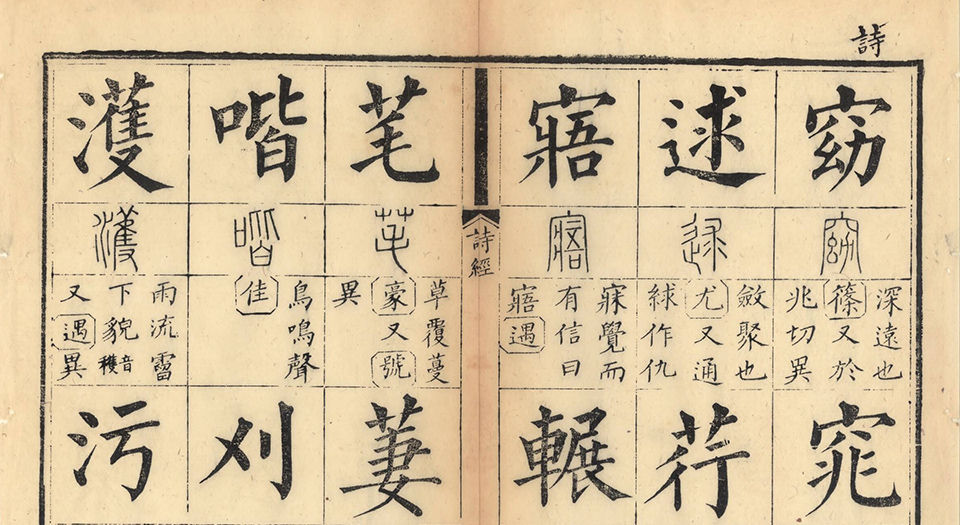 詩
窈
窈
深遠也
篠又於
兆切異
窕
逑
逑
斂聚也
尤又通
絿作仇
荇
寤
寤
寐覺而
有信曰
寤遇
輾
詩經
芼
芼
草覆蔓
豪又號
異
萋
喈
喈
鳥鳴聲
佳
刈
濩
濩
雨流霤
下貌音穫
又遇異
污